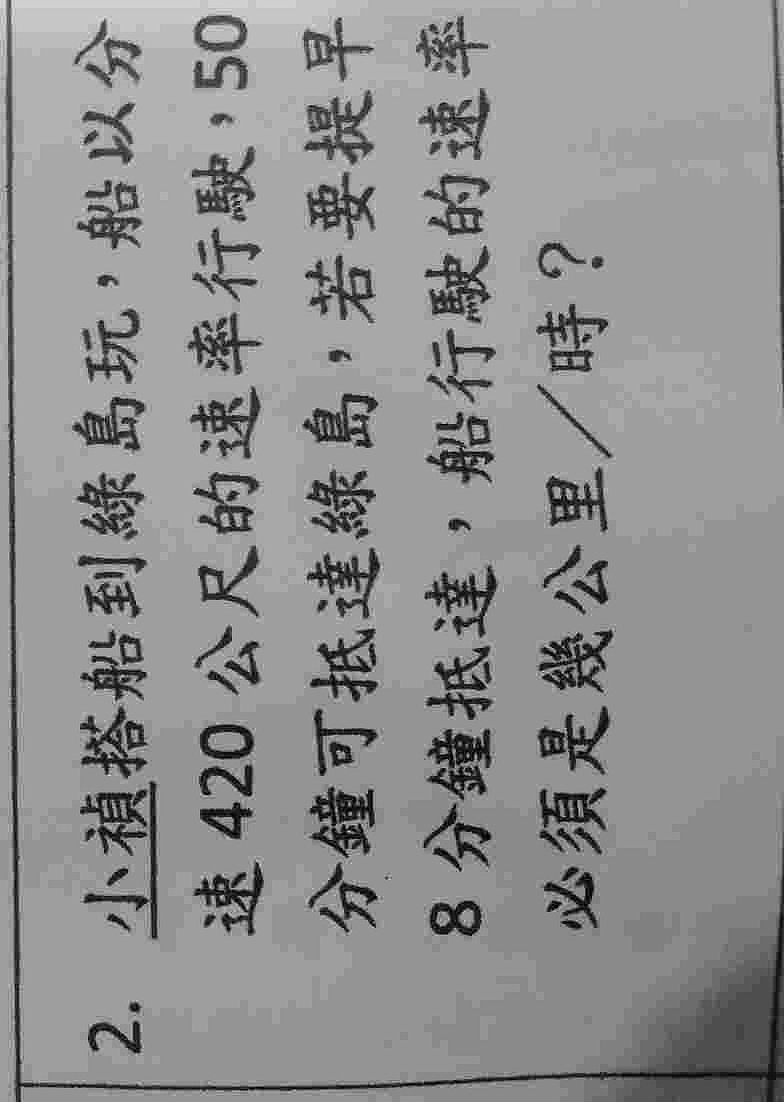 2. 小禎搭船到綠島玩，船以分
速 420 公尺的速率行駛，50
分鐘可抵達綠島，若要提早
8 分鐘抵達，船行駛的速率
必須是幾公里／時？